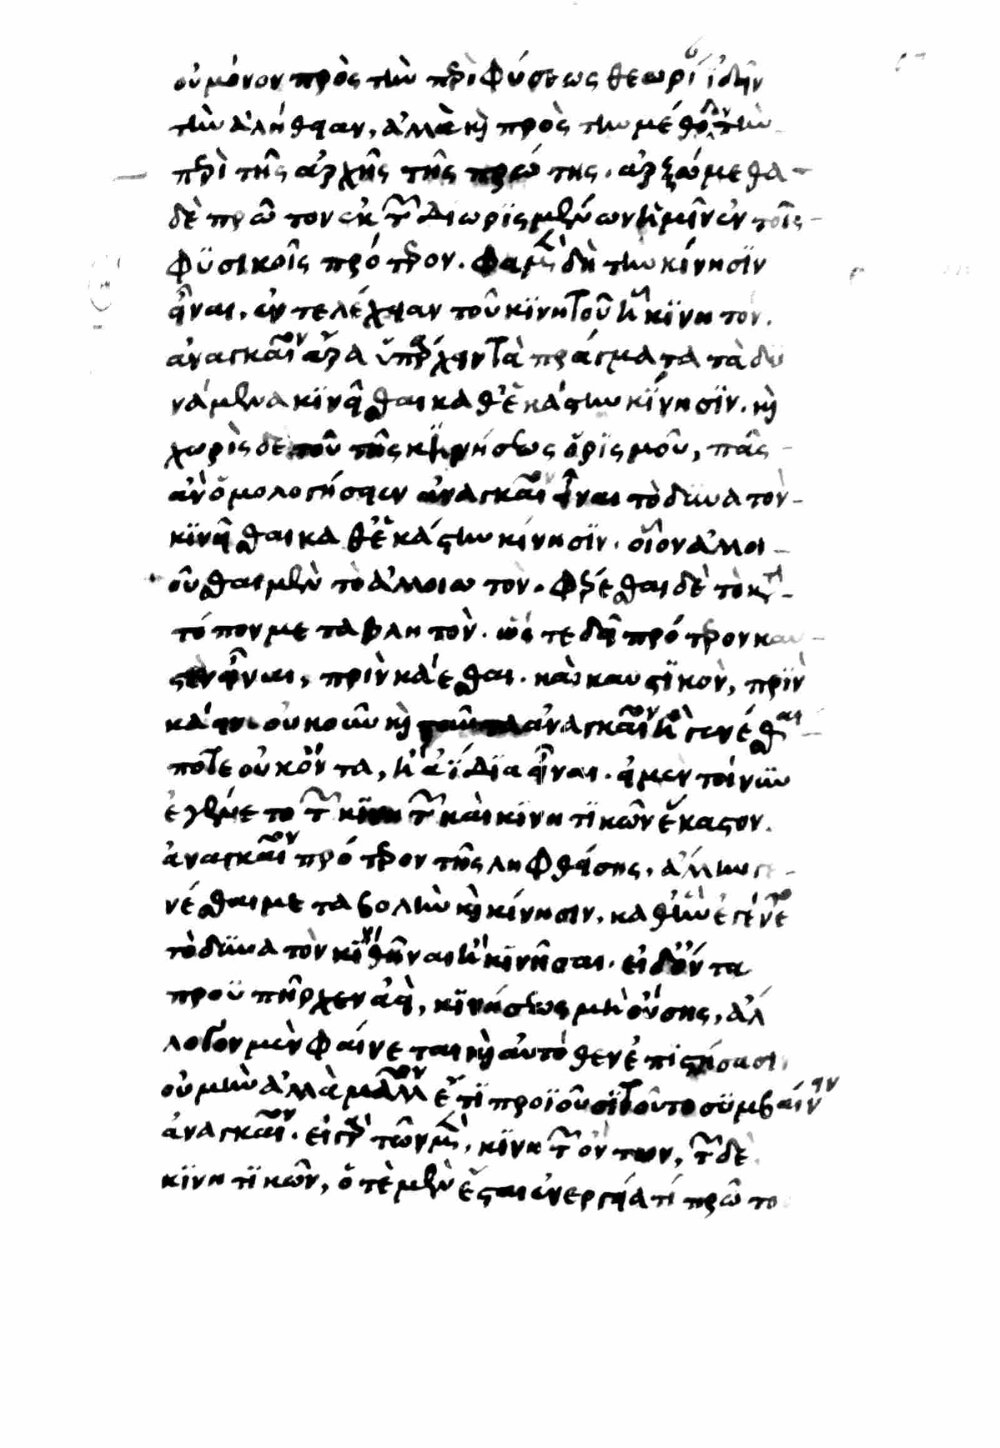 οὐ μόνον πρὸς τὴν περὶ φύσεως θεωρί ἰδεῖν
τὴν ἀλήθειαν, ἀλλὰ καὶ πρὸς τὴν μέθοδον τὴν
περὶ τῆς ἀρχῆς τῆς πρώτης. ἀρξώμεθα
δὲ πρῶτον ἐκ τῶν διωρισμένων ἡμῖν ἐν τοῖς
φϋσικοῖς πρότερον. φαμὲν δὴ τὴν κίνησϊν
εἶναι, ἐντελέχειαν τοῦ κϊνητοῦ ἧ κϊνητόν.
ἀναγκαῖον ἄρα ὑπάρχειν τὰ πράγματα τὰ δυ
νάμενα κϊνεῖσθαι καθ' ἑκάστην κΐνησϊν. καὶ
χωρὶς δὲ τοῦ τῆς κϊνήσεως ὁρϊσμοῦ, πᾶς
ἂν ὁμολογήσειεν ἀναγκαῖον εἶναι τὸ δυνατὸν
κϊνεῖσθαι καθ' ἑκάστην κίνησϊν. οἷον ἀλλοι
οῦσθαι μὲν τὸ ἀλλοιωτόν. φέρεσθαι δὲ τὸ κατὰ
τόπον μεταβλητόν. ὥστε δεῖ πρότερον καυ
στὸν εἶναι, πρὶν κάεσθαι. καὶ καυστϊκὸν, πρϊν
κάειν. οὐκοῦν καὶ ταῦτα ἀναγκαῖον ἢ γενέσθαι
ποτε οὐκ ὄντα, ἢ ἀΐδϊα εἶναι. εἰ μὲν τοίνυν
ἐγένετο τῶν κϊνητῶν καὶ κϊνητϊκῶν ἕκαστον.
ἀναγκαῖον πρότερον τῆς ληφθείσης, ἄλλην γε
νέσθαι μεταβολὴν καὶ κίνησιν, καθ' ἣν ἐγένετο
τὸ δυνατὸν κϊνηθῆναι ἢ κϊνῆσαι. εἰ δ' ὄντα
προϋπῆρχεν ἀεὶ, κϊνήσεως μὴ οὔσης, ἄλ
λογον μὲν φαίνεται καὶ αὐτόθεν ἐπϊστήσασι
οὐ μὴν ἀλλὰ μᾶλλον ἔτϊ προϊοῦσϊ τοῦτο συμβαίνειν
ἀναγκαῖον. εἰ γὰρ τῶν μὲν, κϊνητῶν ὄντων, τῶν δὲ
κϊνητϊκῶν, ὁτὲ μὲν ἔσται ἐνεργείᾳ τί πρῶτον